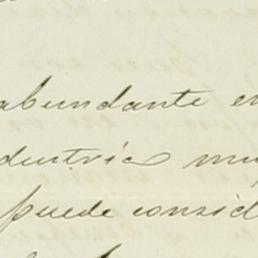 abundante en
dustria mu
puede consid